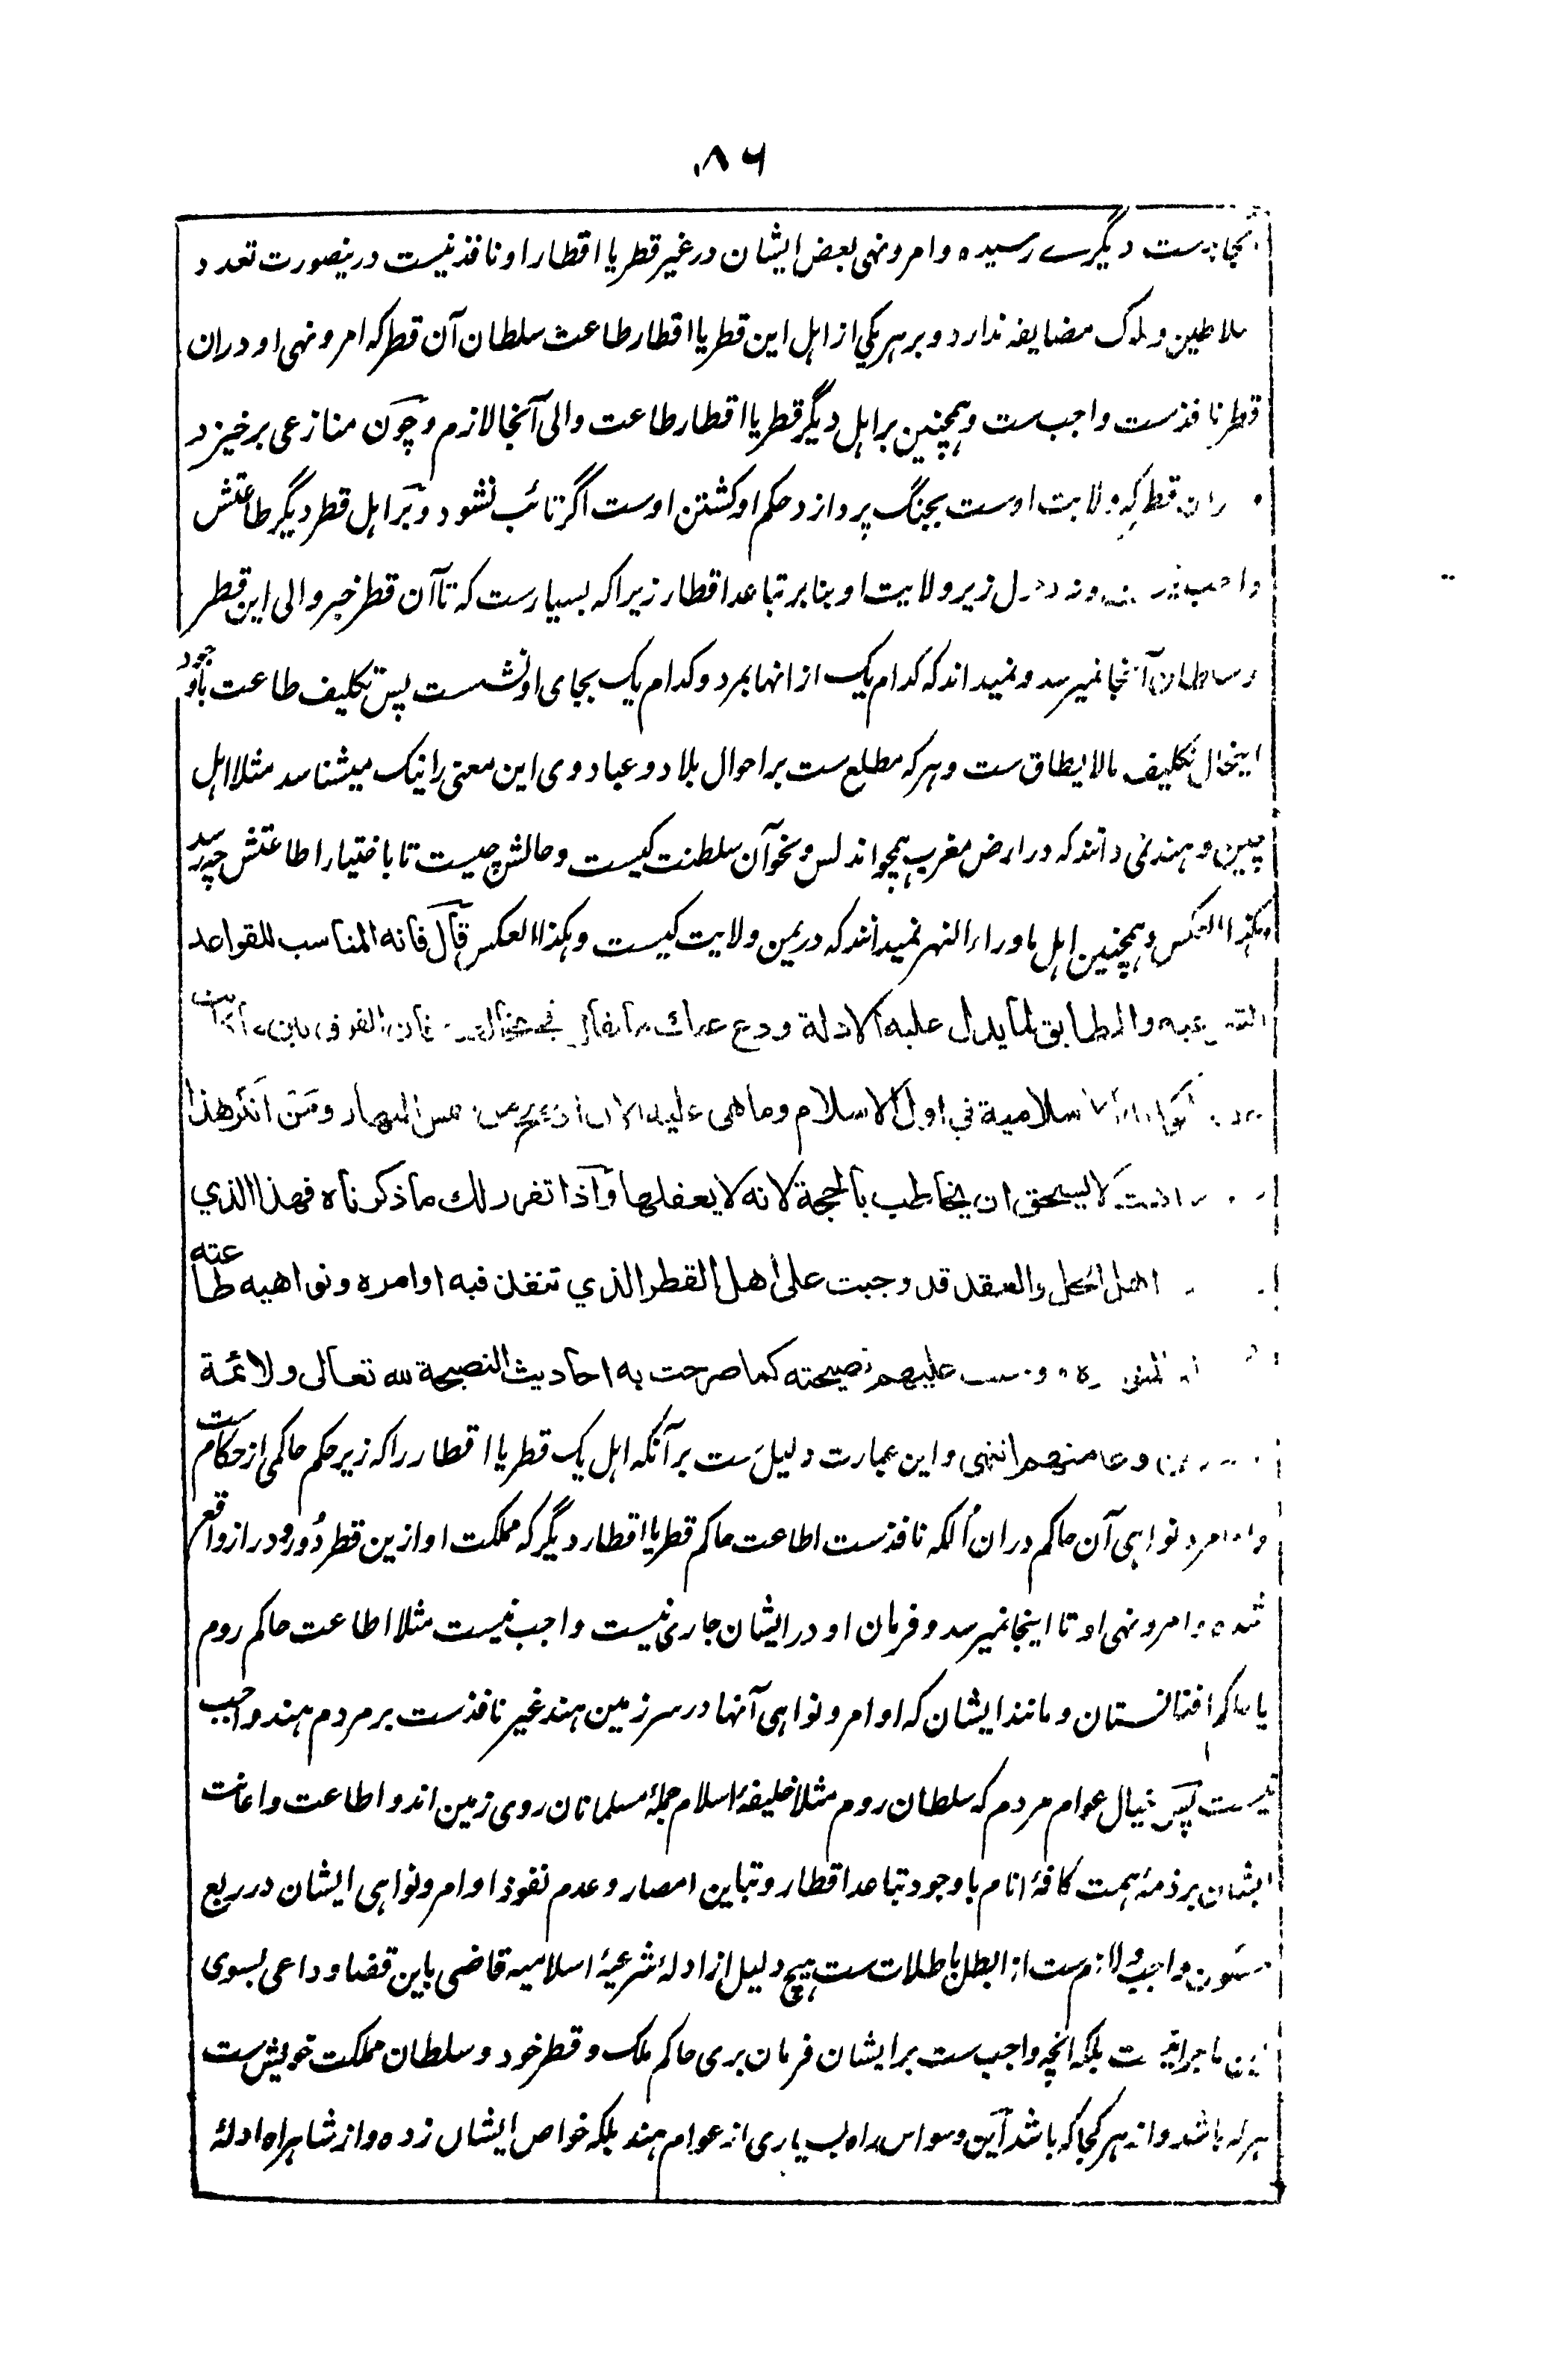 ۸۶
دیگرے رسیده و امر و نهی بعض ایشان در غیر قطر یا اقطار او نافذ نیست درینصورت تعدد
سلاطین و ملوک مضایقه ندارد و بر هر یکی از اهل این قطر یا اقطار طاعت سلطان آن قطر که امر و نهی او دران
قطر نافذست واجب ست و همچنین بر اهل دیگر قطر یا اقطار طاعت والی آنجا لازم و چون منازعی برخیزد
قطر که ولایت اوست بجنگ پردازد حکم او کشتن اوست اگر تائب نشود و بر اهل قطر دیگر طاعتش
زیر ولایت او بنابر تباعد اقطار زیرا که بسیارست که تا آن قطر خبر والی این قطر
و سلطان آنجا نمیرسد و نمیداند که کدام یک از انها بمرد و کدام یک بجای او نشست پس تکلیف طاعت باوجود
اینحال تکلیف مالایطاق ست و هر که مطلع ست بر احوال بلاد و عباد وی این معنی را نیک میشناسد مثلا اهل
چین و هند نمی دانند که در ارض مغرب همچو اندلس و نحو آن سلطنت کیست و حالش چیست تا باختیار اطاعتش چه رسد
و هکذا العکس و همچنین اهل ماوراء النهر نمیدانند که در یمن ولایت کیست و هکذا العکس قال فانه المناسب للقواعد
والمطابق لما یدل علیه الادلة ودع عنك ما یقال فی مخالفته فان الفرق بین
الاسلامیة فی اول الاسلام وما هی علیه الان اوضح من شمس النهار ومن انکر هذا
لا یستحق ان یخاطب بالحجة لانه لا یعقلها واذا تقرر لك ما ذکرناه فهذا الذی
اهل الحل والعقد قد وجبت علی اهل القطر الذی تنفذ فیه اوامره ونواهیه طاعته
علیهم نصیحته کما صرحت به احادیث النصیحة لله تعالی ولائمة
وعامتهم انتهی و این عبارت دلیل ست بر آنکه اهل یک قطر یا اقطار را که زیر حکم حاکمی از حکام ست
و اوامر و نواهی آن حاکم دران الکه نافذست اطاعت حاکم قطر یا اقطار دیگر که مملکت او ازین قطر دور و دراز واقع
شده و امر و نهی او تا اینجا نمیرسد و فرمان او در ایشان جاری نیست واجب نیست مثلا اطاعت حاکم روم
یا حاکم افغانستان و مانند ایشان که اوامر و نواهی آنها در سرزمین هند غیر نافذست بر مردم هند واجب
نیست پس خیال عوام مردم که سلطان روم مثلا خلیفهٔ اسلام جملهٔ مسلمانان روی زمین اند و اطاعت و اعانت
ایشان بر ذمهٔ همت کافهٔ انام باوجود تباعد اقطار و تباین امصار و عدم نفوذ اوامر و نواهی ایشان در ربع
مسکون واجب و لازم ست از ابطل باطلات ست هیچ دلیل از ادلهٔ شرعیهٔ اسلامیه قاضی باین قضا و داعی بسوی
این ماجرا نیست بلکه آنچه واجب ست بر ایشان فرمان بری حاکم ملک و قطر خود و سلطان مملکت خویش ست
هر که باشد و از هر کجا که باشد این وسواس راه بسیاری از عوام هند بلکه خواص ایشان زده و از شاهراه ادلهٔ